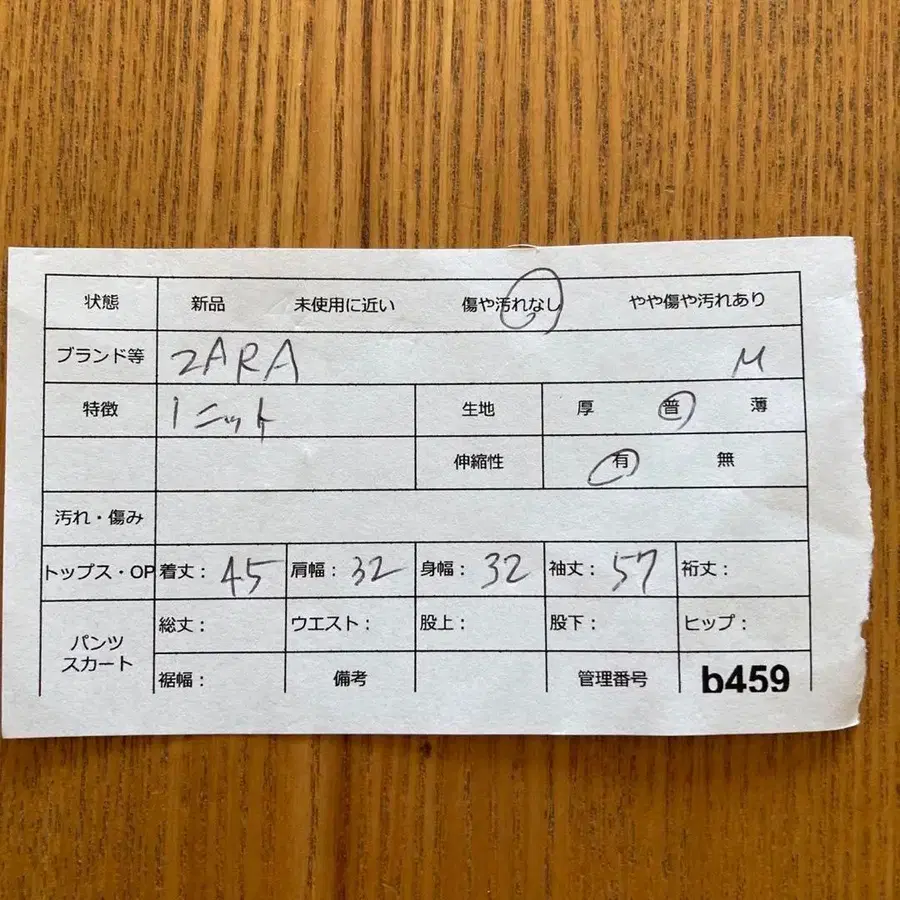 状態 新品 未使用に近い 傷や汚れなし やや傷や汚れあり
ブランド等 ZARA M
特徴 1 ニット 生地 厚 普 薄
伸縮性 有 無
汚れ・傷み
トップス・OP 着丈: 45 肩幅: 32 身幅: 32 袖丈: 57 裄丈:
パンツ スカート 総丈: ウエスト: 股上: 股下: ヒップ:
裾幅: 備考 管理番号 b459